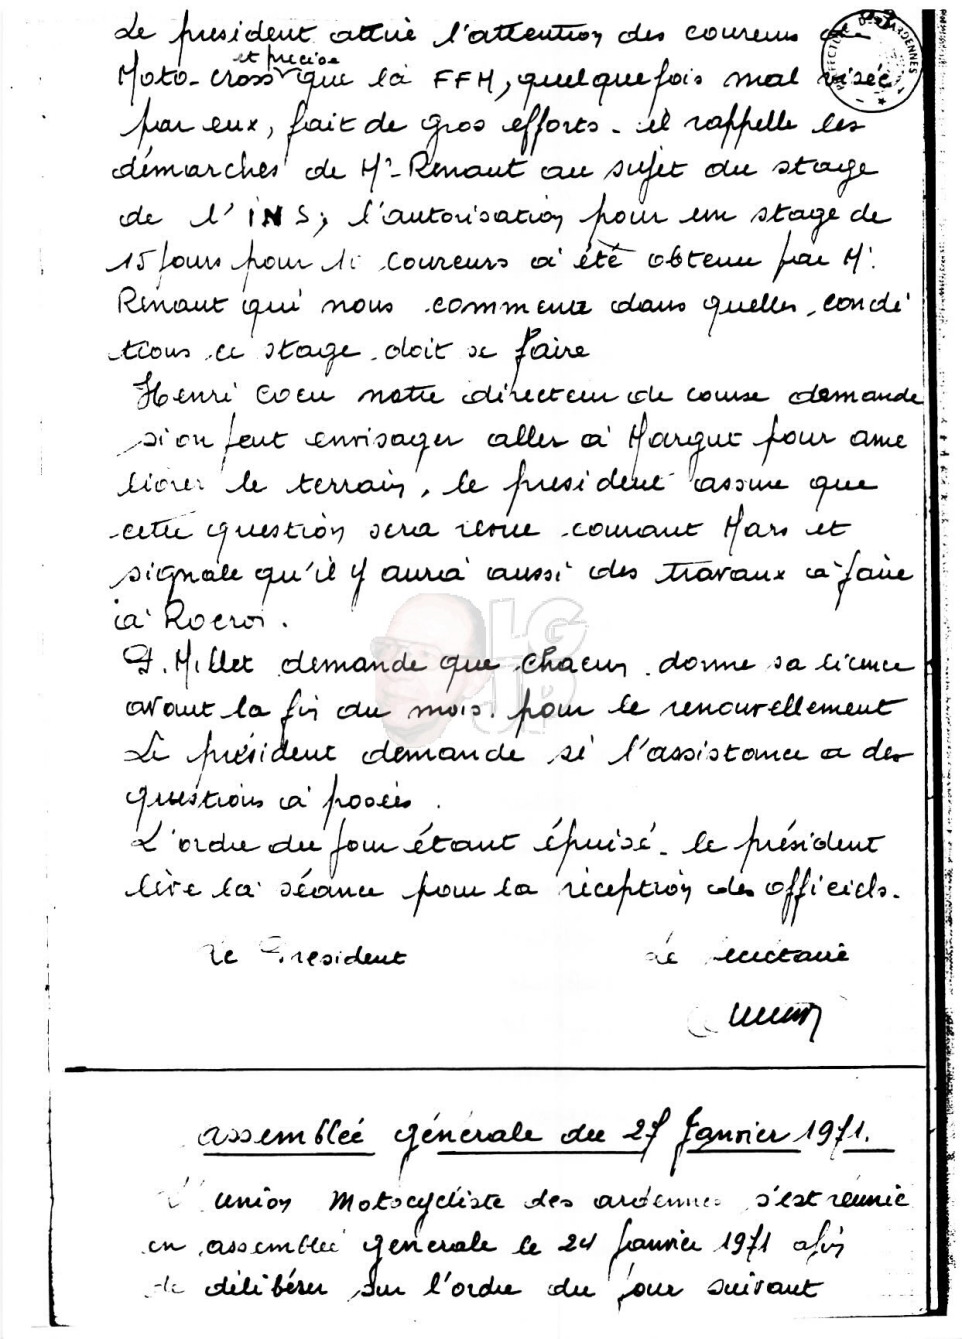 Le president attire l'attention des coureurs de
et précise
Moto-cross que la FFM, quelquefois mal visée
par eux, fait de gros efforts. il rappelle les
démarches de Mr Renaut au sujet du stage
de l'INS, l'autorisation pour un stage de
15 jours pour 10 coureurs a été obtenu par Mr.
Renaut qui nous commente dans quelles condi
tions ce stage doit se faire
Henri Coeu notre directeur de course demande
si on peut envisager aller à Margut pour amé
liorer le terrain, le president assure que
cette question sera revue courant Mars et
signale qu'il y aura aussi des travaux à faire
à Rocroi.
Millet demande que chacun donne sa licence
avant la fin du mois. pour le renouvellement
Le président demande si l'assistance a des
questions à posées.
L'ordre du jour étant épuisé. le président
lève la séance pour la réception des officiels.
Le President Le Secrétaire
assemblée générale du 27 Janvier 1971.
L'union Motocycliste des ardennes s'est réunie
en assemblée generale le 24 janvier 1971 afin
de délibérer sur l'ordre du jour suivant
LG
JP